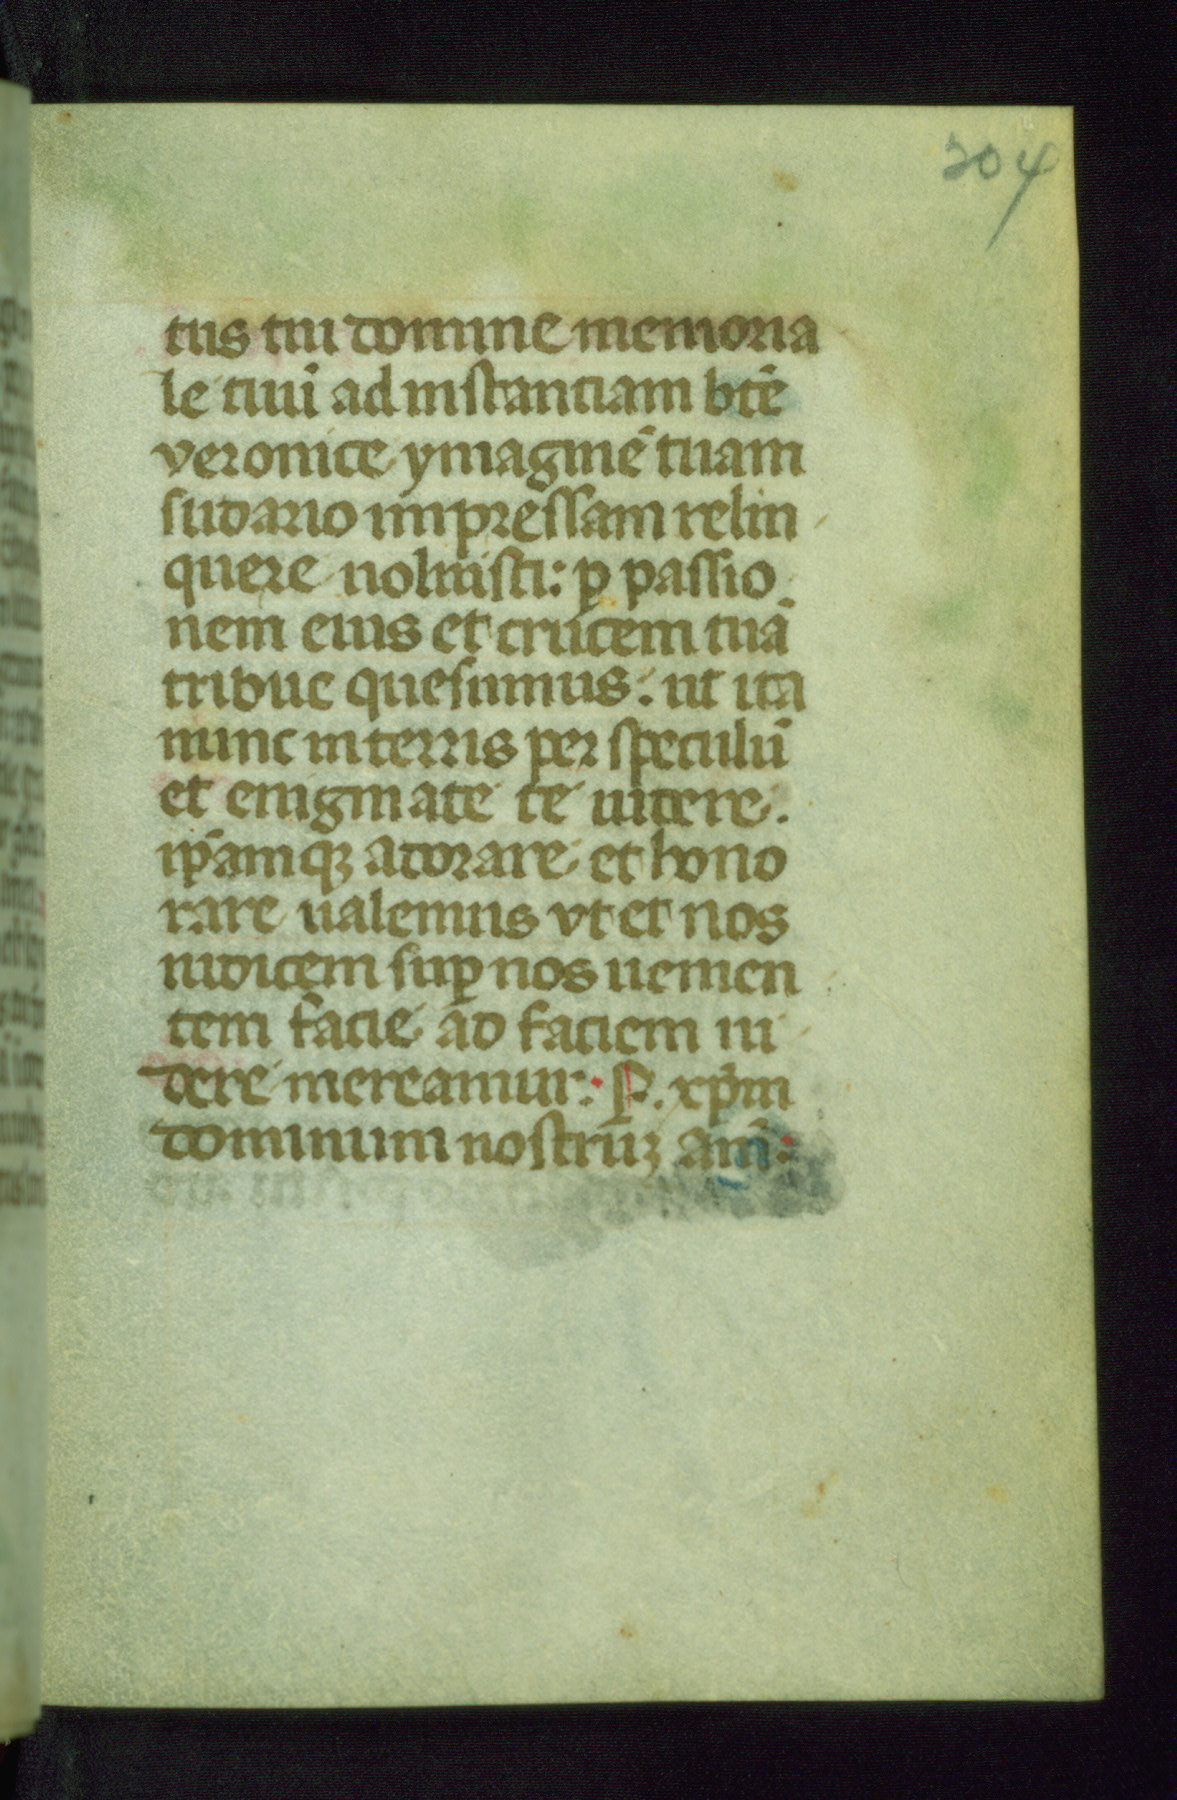 204
tus tui domine memoria
le tiuī ad instantiam btē
veronice ymaginē tuam
sudario impressam relin
quere uoluisti: ꝑ passio
nem eius et crucem tuā
tribue quesumus. ut ita
nunc in terris per speculū
et enigmate te uidere.
ip̄amqꝫ adorare et hono
rare ualemus vt et nos
iudicem suꝑ nos uenien
tem facie ad faciem ui
dere mereamur: P. xp̄m
dominum nostruꝫ am̄: